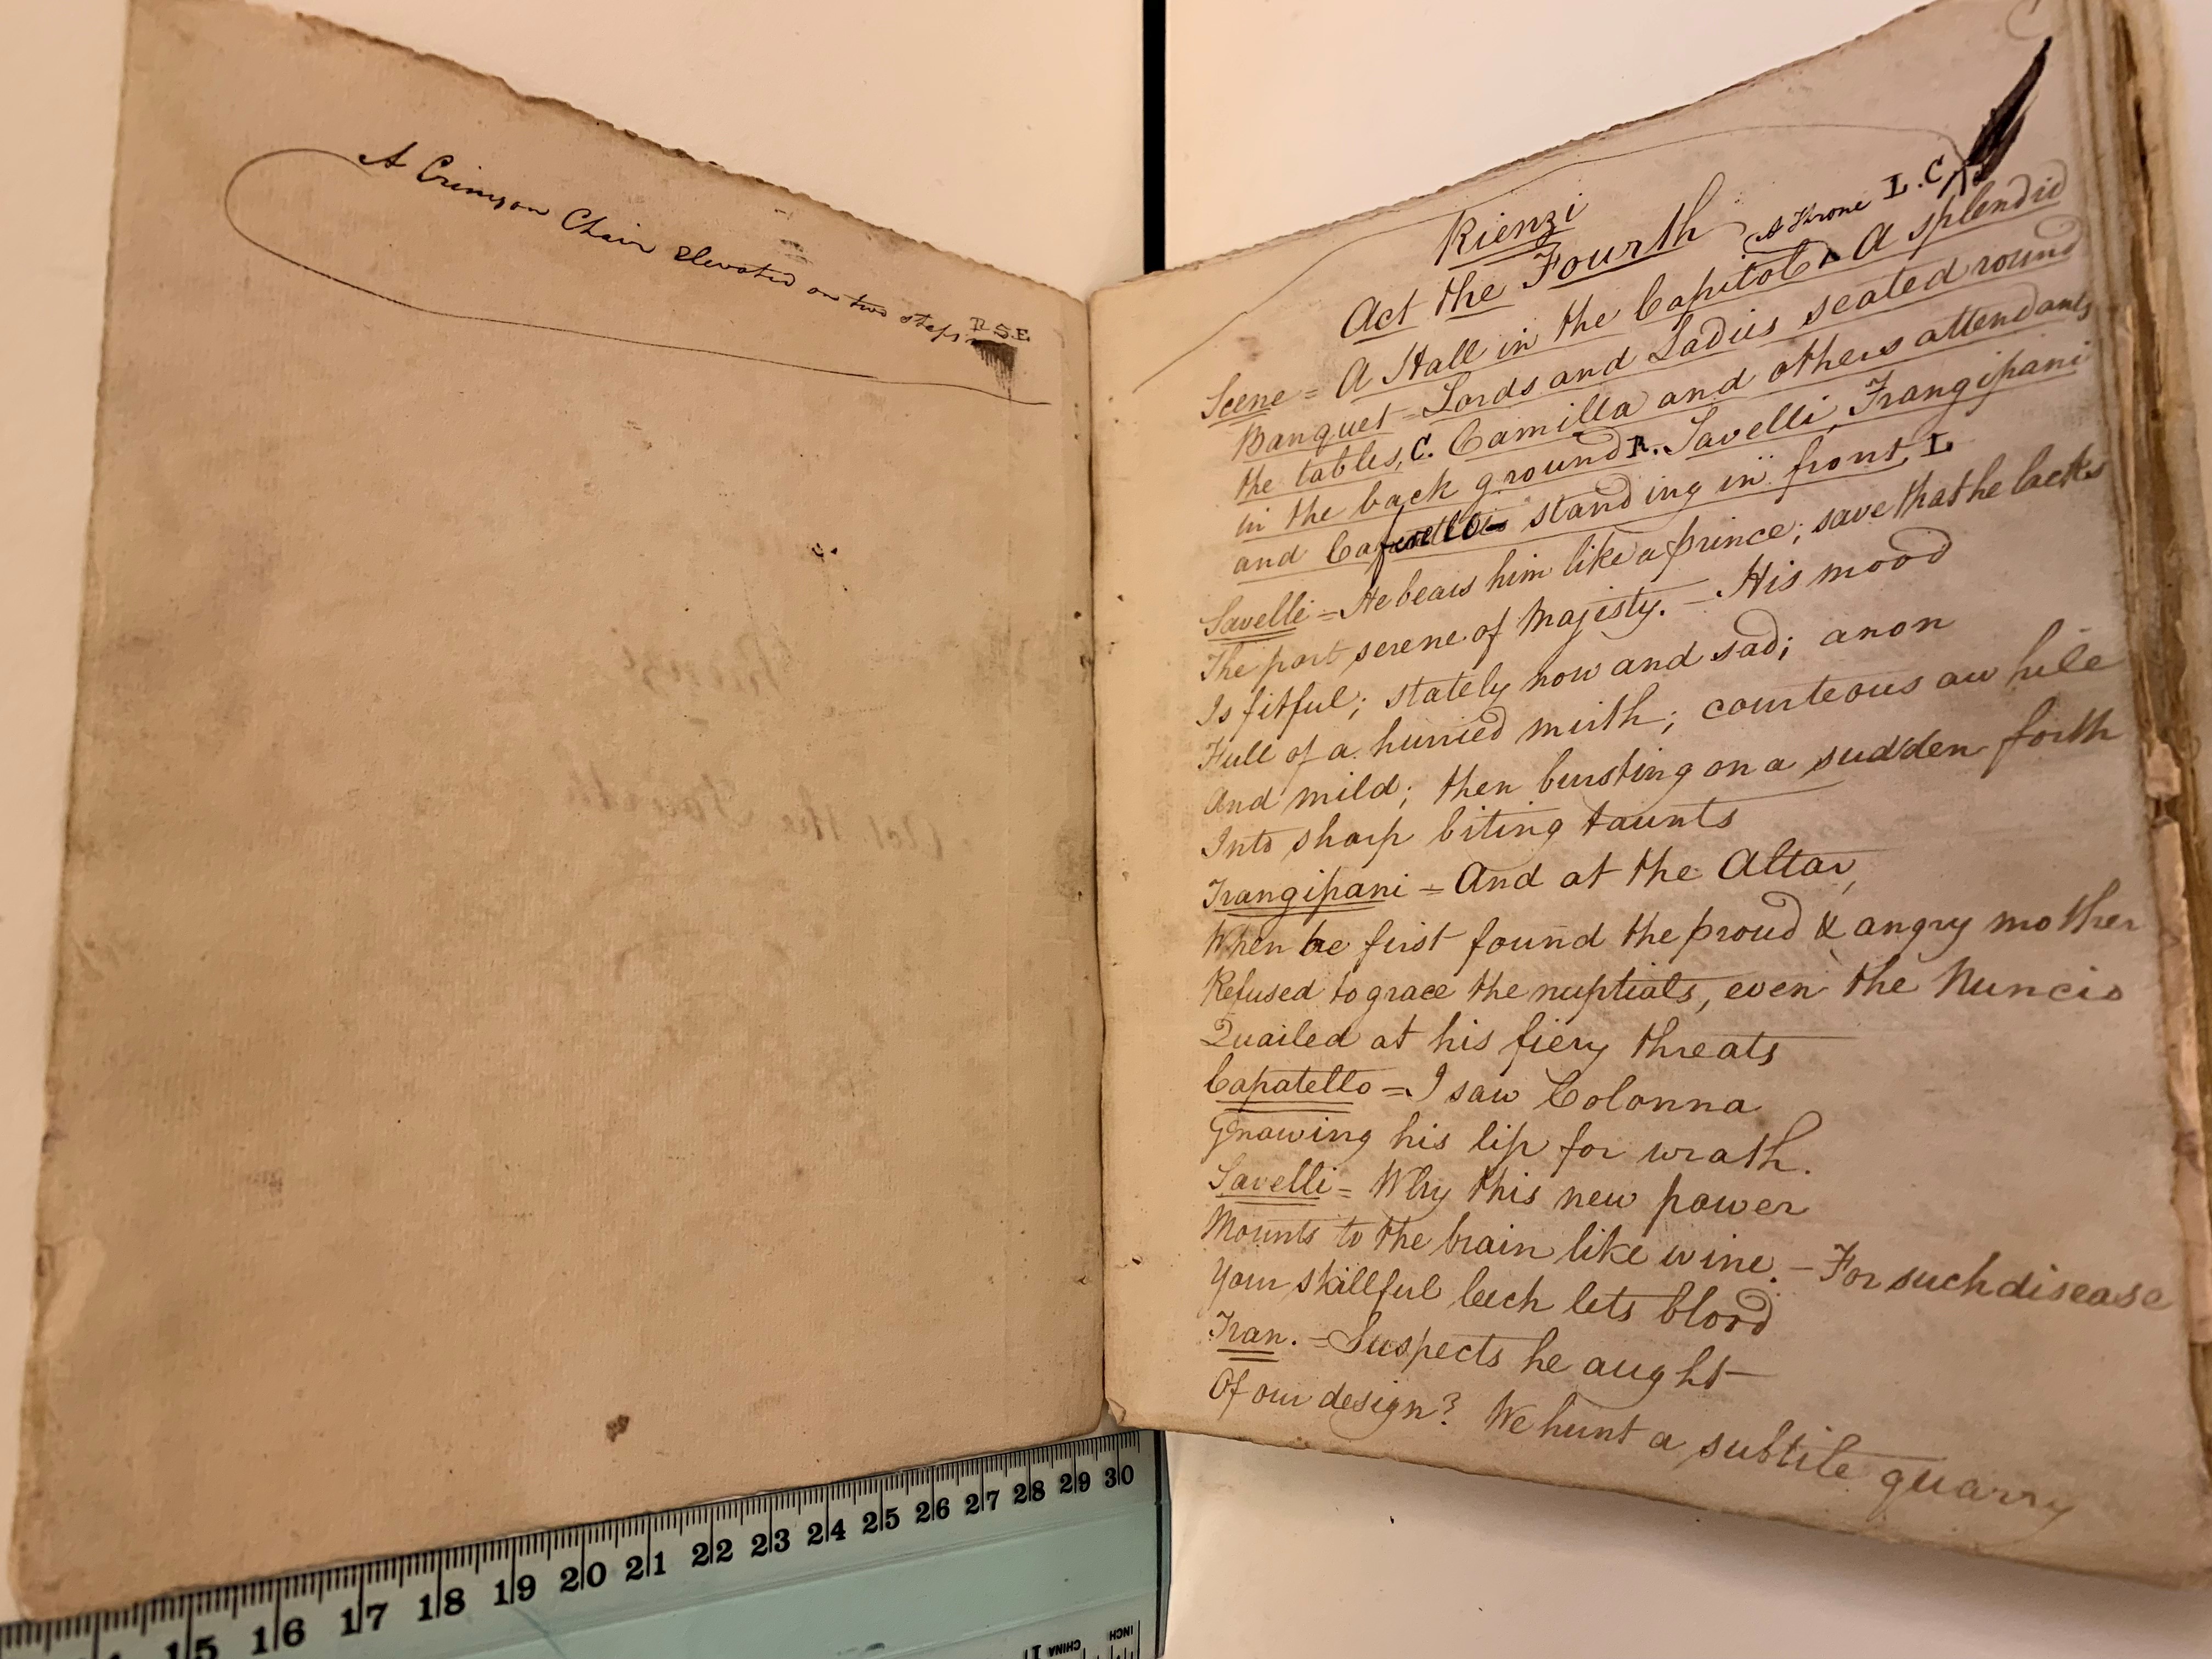 A Crimson Chair elevated on two steps R S.E
Rienzi
Act the Fourth
A Throne L.C.
Scene = A Hall in the Capitol. A splendid
Banquet = Lords and Ladies seated round
the tables, C. Camilla and others attendants
in the back ground R. Savelli, Frangipani
and standing in front L
Savelli = He bears him like a prince; save that he lacks
The port serene of Majesty. — His mood
Is fitful; stately now and sad; anon
Full of a hurried mirth; courteous awhile
And mild; then bursting on a sudden forth
Into sharp biting taunts
Frangipani = And at the Altar,
When he first found the proud & angry mother
Refused to grace the nuptials, even the Nuncio
Quailed at his fiery threats
Capatello = I saw Colonna
Gnawing his lip for wrath.
Savelli = Why this new power
Mounts to the brain like wine. — For such disease
Your skillful leech lets blood
Fran. = Suspects he aught
Of our design? We hunt a subtile quarry
15 16 17 18 19 20 21 22 23 24 25 26 27 28 29 30
CHINA
INCH